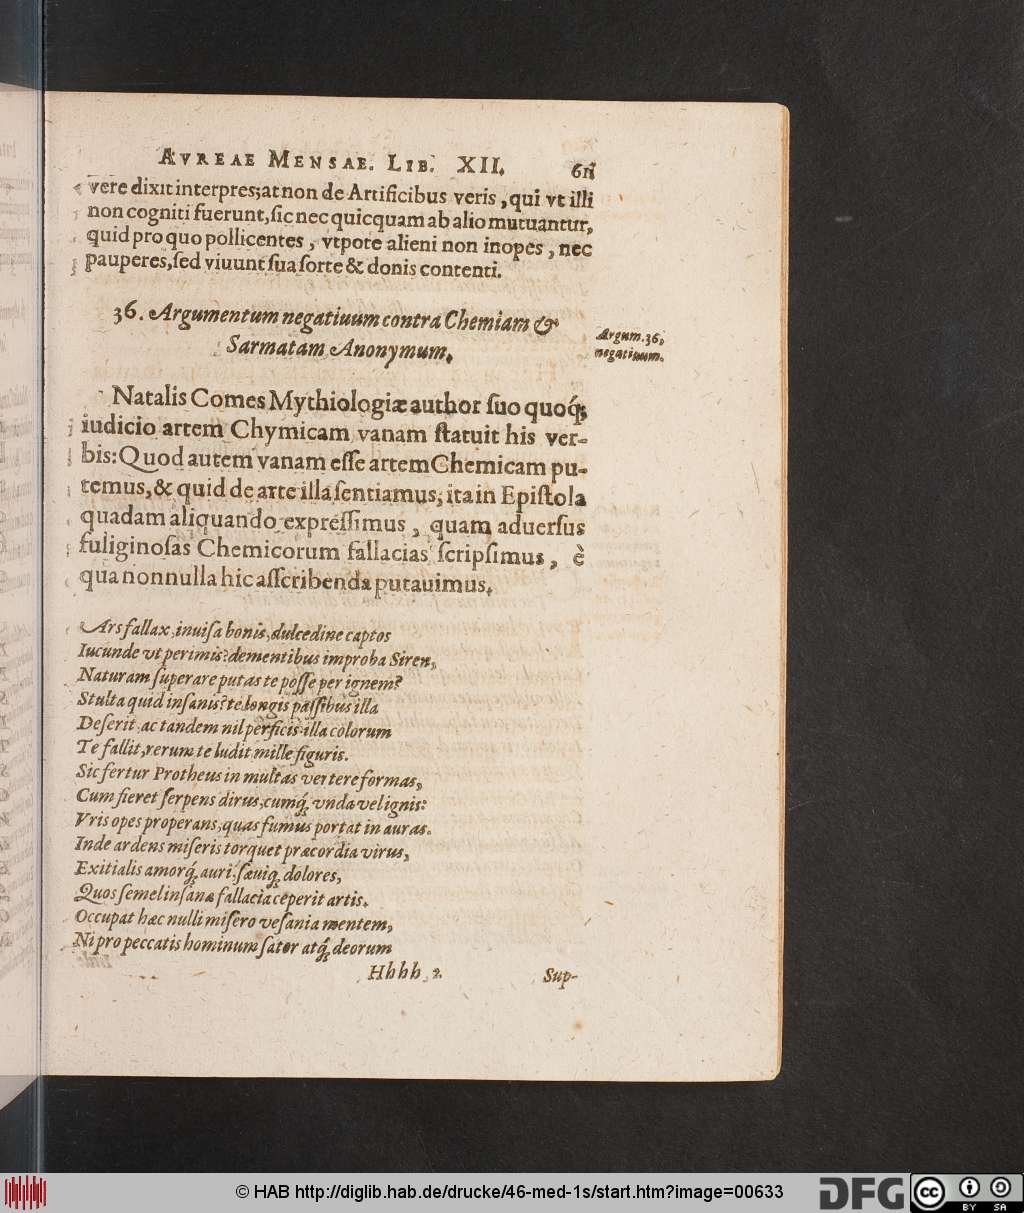 AVREAE MENSAE. LIB. XII. 611
vere dixit interpres; at non de Artificibus veris, qui vt illi
non cogniti fuerunt, sic nec quicquam ab alio mutuantur,
quid pro quo pollicentes, vtpote alieni non inopes, nec
pauperes, sed viuunt sua sorte & donis contenti.
36. Argumentum negatiuum contra Chemiam &
Sarmatam Anonymum.
Argum. 36.
negatiuum.
Natalis Comes Mythiologiæ author suo quoq́;
iudicio artem Chymicam vanam statuit his ver-
bis: Quod autem vanam esse artem Chemicam pu-
temus, & quid de arte illa sentiamus, ita in Epistola
quadam aliquando expressimus, quam aduersus
fuliginosas Chemicorum fallacias scripsimus, è
qua nonnulla hic asscribenda putauimus.
Ars fallax, inuisa bonis, dulcedine captos
Iucunde vt perimis? dementibus improba Siren,
Naturam superare putas te posse per ignem?
Stulta quid insanis? te longis passibus illa
Deserit, ac tandem nil perficis: illa colorum
Te fallit, rerum te ludit mille figuris.
Sic fertur Protheus in multas vertere formas,
Cum fieret serpens dirus, cumq́; vnda vel ignis:
Vris opes properans, quas fumus portat in auras.
Inde ardens miseris torquet præcordia virus,
Exitialis amorq́; auri: sæuiq́; dolores,
Quos semel insanæ fallacia ceperit artis.
Occupat hæc nulli misero vesania mentem,
Ni pro peccatis hominum sator atq́; deorum
Hhhh 2. Sup-
© HAB http://diglib.hab.de/drucke/46-med-1s/start.htm?image=00633
DFG
cc BY SA